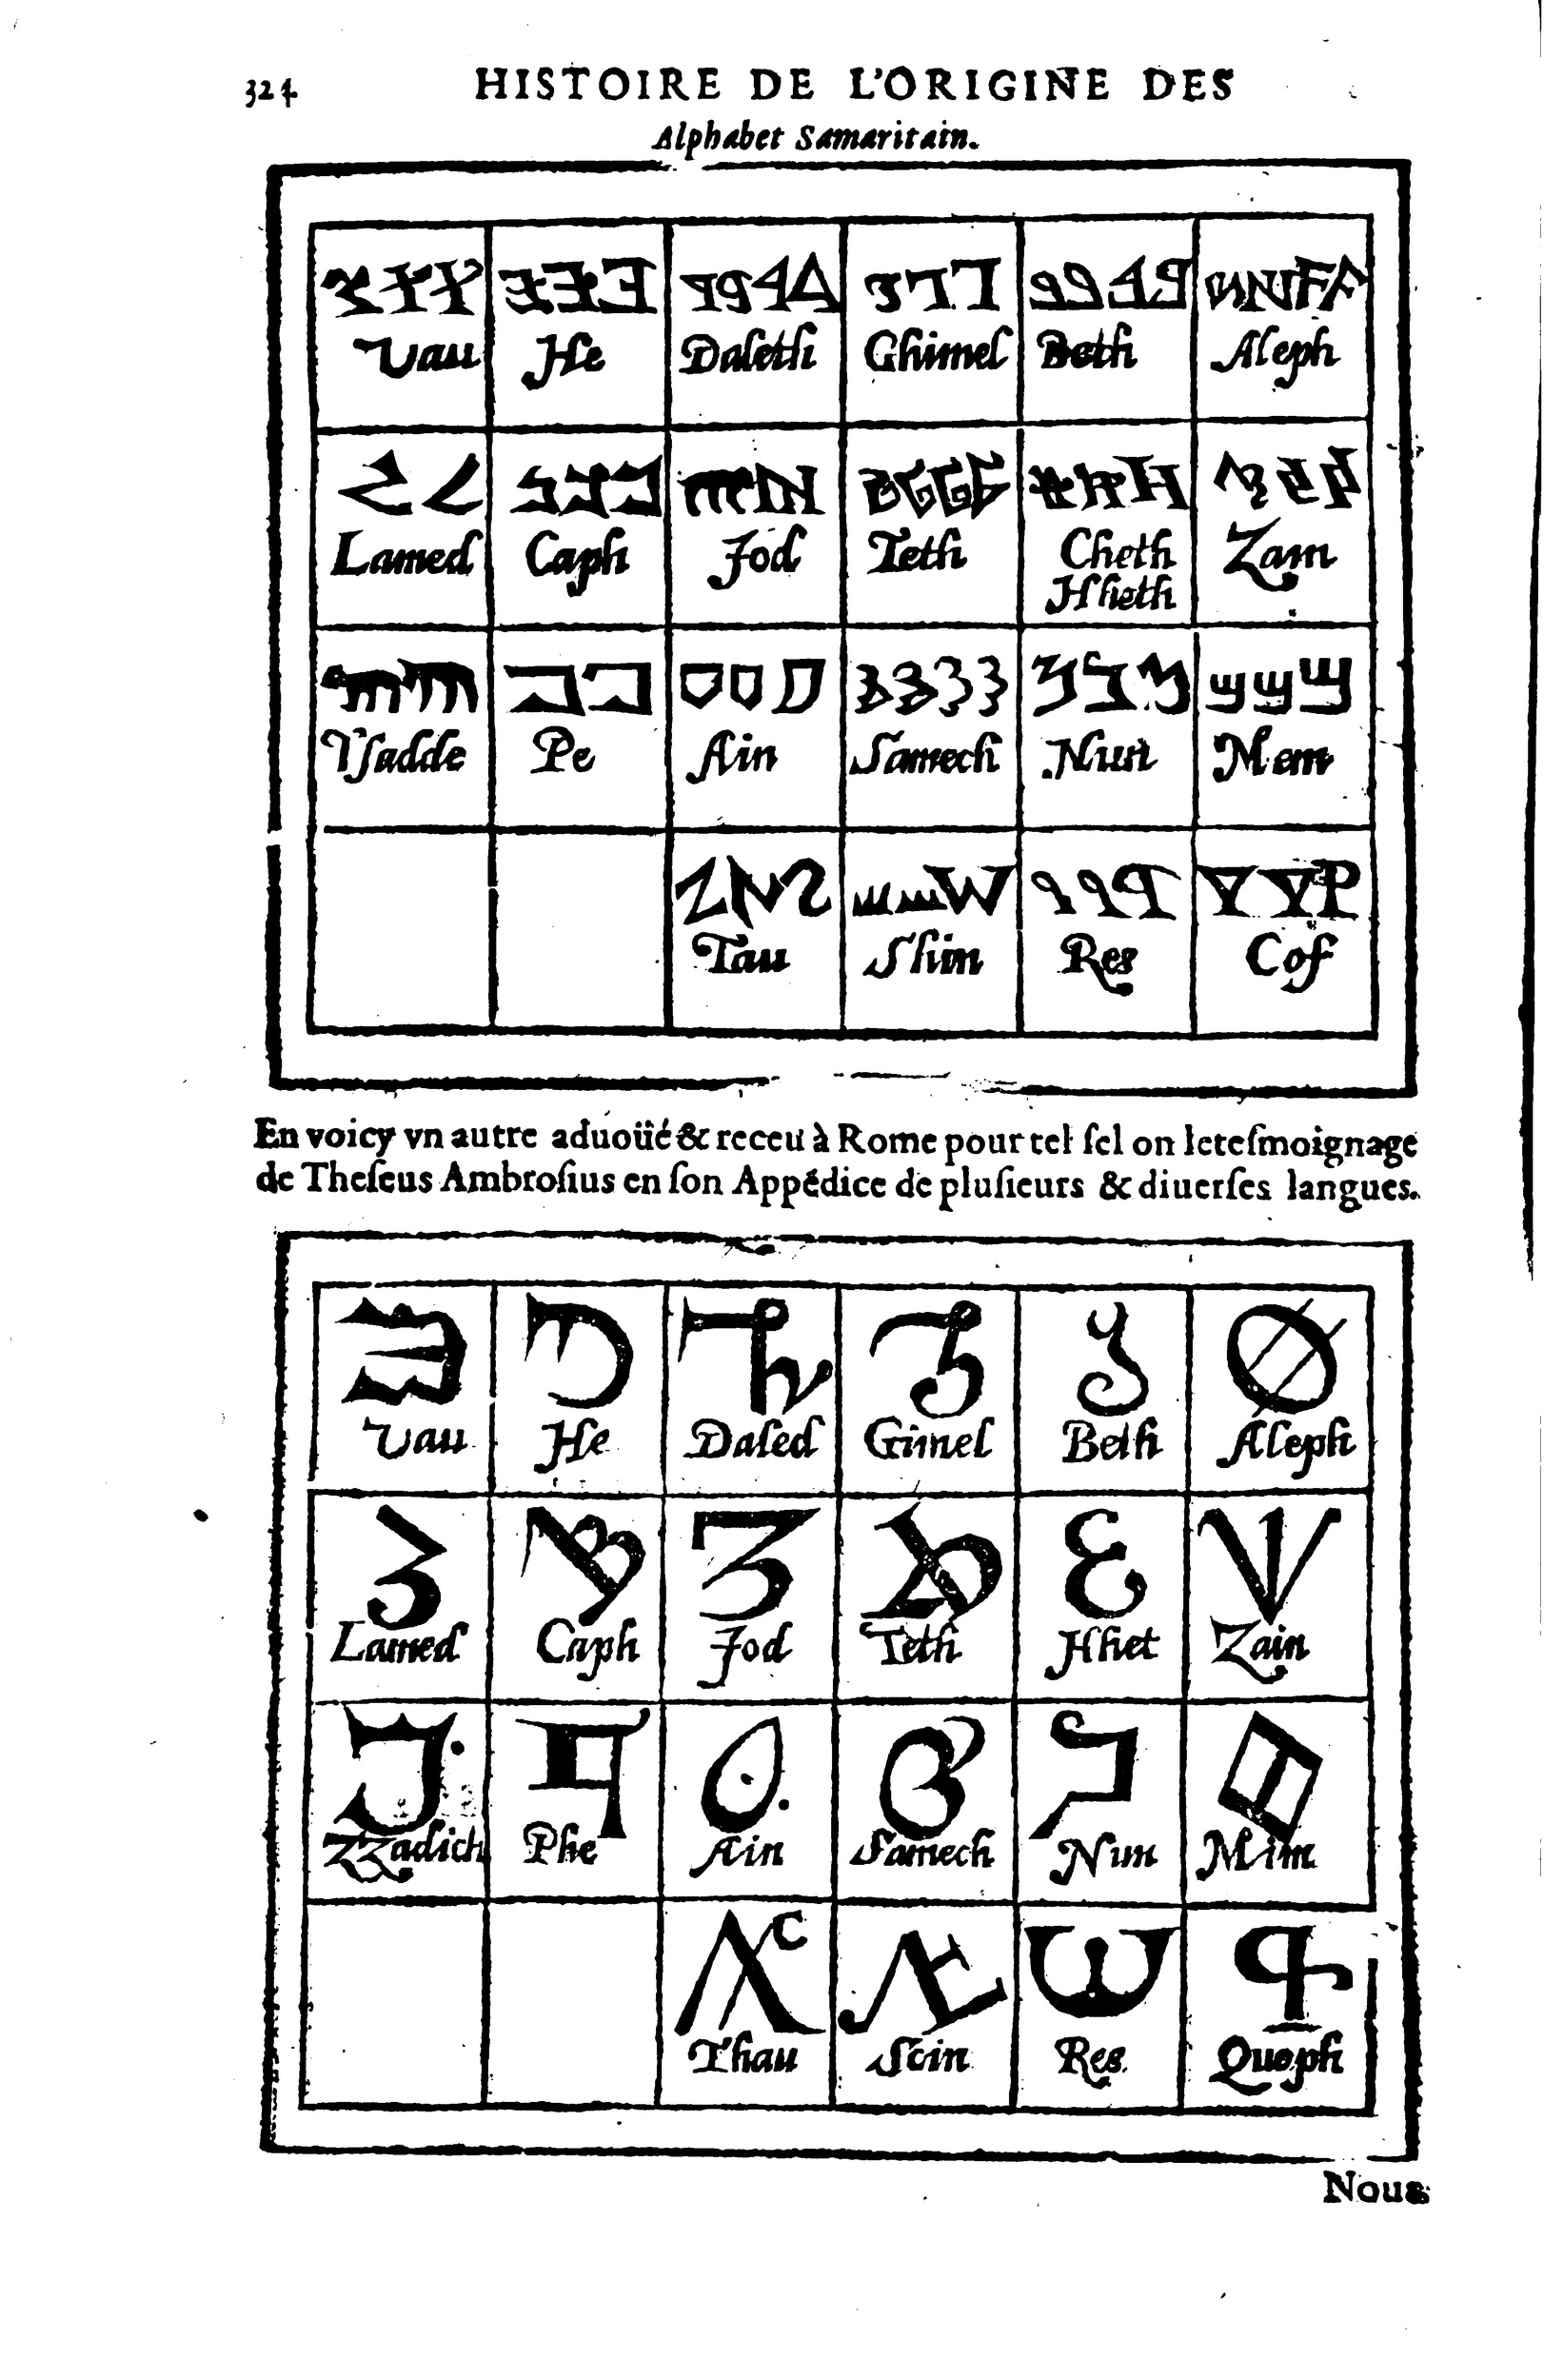 324 HISTOIRE DE L'ORIGINE DES
Alphabet Samaritain.
Vau He Daleth Ghimel Beth Aleph
Lamed Caph Jod Teth Cheth Zam
Hheth
Tſadde Pe Ain Samech Nun Mem
Tau Shin Res Cof
En voicy vn autre aduoüé & receu à Rome pour tel ſel on leteſmoignage
de Theſeus Ambroſius en ſon Appēdice de pluſieurs & diuerſes langues.
Vau He Daled Gimel Beth Aleph
Lamed Caph Jod Teth Hhet Zain
Zzadich Phe Ain Samech Nun Mim
Thau Scin Res Quoph
Nous